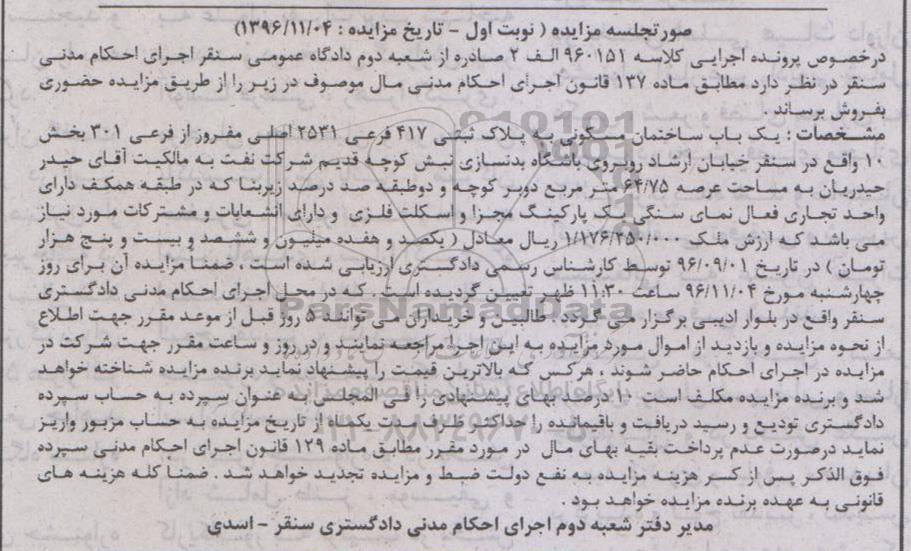 صورتجلسه مزایده ( نوبت اول - تاریخ مزایده : ۱۳۹۶/۱۱/۰۴)
درخصوص پرونده اجرایی کلاسه ۹۶۰۱۵۱ الف ۲ صادره از شعبه دوم دادگاه عمومی سنقر اجرای احکام مدنی
سنقر در نظر دارد مطابق ماده ۱۳۷ قانون اجرای احکام مدنی مال موصوف در زیر را از طریق مزایده حضوری
بفروش برساند .
مشخصات : یک باب ساختمان مسکونی به پلاک ثبتی ۴۱۷ فرعی ۲۵۳۱ اصلی مفروز از فرعی ۳۰۱ بخش
۱۰ واقع در سنقر خیابان ارشاد روبروی باشگاه بدنسازی نبش کوچه قدیم شرکت نفت به مالکیت آقای حیدر
حیدریان به مساحت عرصه ۶۴/۷۵ متر مربع دوبر کوچه و دوطبقه صد درصد زیربنا که در طبقه همکف دارای
واحد تجاری فعال نمای سنگی یک پارکینگ مجزا و اسکلت فلزی و دارای انشعابات و مشترکات مورد نیاز
می باشد که ارزش ملک ۱/۱۷۶/۲۵۰/۰۰۰ ریال معادل ( یکصد و هفده میلیون و ششصد و بیست و پنج هزار
تومان ) در تاریخ ۹۶/۰۹/۰۱ توسط کارشناس رسمی دادگستری ارزیابی شده است ، ضمنا مزایده آن برای روز
چهارشنبه مورخ ۹۶/۱۱/۰۴ ساعت ۱۱:۳۰ ظهر تعیین گردیده است . که در محل اجرای احکام مدنی دادگستری
سنقر واقع در بلوار ادیبی برگزار می گردد. طالبین و خریداران می توانند ۵ روز قبل از موعد مقرر جهت اطلاع
از نحوه مزایده و بازدید از اموال مورد مزایده به این اجرا مراجعه نمایند و در روز و ساعت مقرر جهت شرکت در
مزایده در اجرای احکام حاضر شوند ، هرکس که بالاترین قیمت را پیشنهاد نماید برنده مزایده شناخته خواهد
شد و برنده مزایده مکلف است ۱۰ درصد بهای پیشنهادی را فی المجلس به عنوان سپرده به حساب سپرده
دادگستری تودیع و رسید دریافت و باقیمانده را حداکثر ظرف مدت یکماه از تاریخ مزایده به حساب مزبور واریز
نماید درصورت عدم پرداخت بقیه بهای مال در مورد مقرر مطابق ماده ۱۲۹ قانون اجرای احکام مدنی سپرده
فوق الذکر پس از کسر هزینه مزایده به نفع دولت ضبط و مزایده تجدید خواهد شد . ضمنا کلیه هزینه های
قانونی به عهده برنده مزایده خواهد بود .
مدیر دفتر شعبه دوم اجرای احکام مدنی دادگستری سنقر - اسدی
ParsNamadData